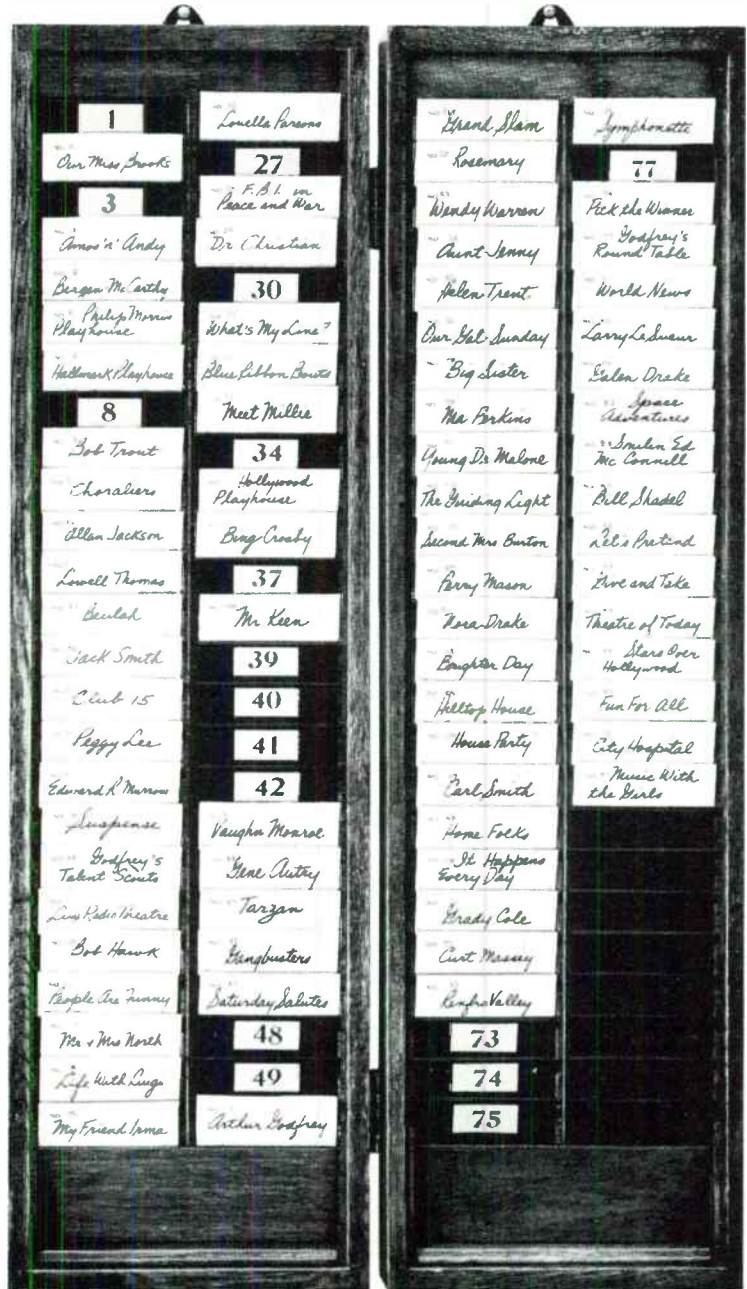 1
Our Miss Brooks
3
Amos 'n' Andy
Bergen McCarthy
Philip Morris
Playhouse
Hallmark Playhouse
8
Bob Trout
Choraliers
Allan Jackson
Lowell Thomas
Beulah
Jack Smith
Club 15
Peggy Lee
Edward R Murrow
Suspense
Godfrey's
Talent Scouts
Lux Radio Theatre
Bob Hawk
People Are Funny
Mr & Mrs North
Life With Luigi
My Friend Irma
Louella Parsons
27
F.B.I. in
Peace and War
Dr Christian
30
What's My Line?
Blue Ribbon Bouts
Meet Millie
34
Hollywood
Playhouse
Bing Crosby
37
Mr Keen
39
40
41
42
Vaughn Monroe
Gene Autry
Tarzan
Gangbusters
Saturday Salutes
48
49
Arthur Godfrey
Grand Slam
Rosemary
Wendy Warren
Aunt Jenny
Helen Trent
Our Gal Sunday
Big Sister
Ma Perkins
Young Dr Malone
The Guiding Light
Second Mrs Burton
Perry Mason
Nora Drake
Brighter Day
Hilltop House
House Party
Carl Smith
Home Folks
It Happens
Every Day
Grady Cole
Curt Massey
Renfro Valley
73
74
75
Symphonette
77
Pick the Winner
Godfrey's
Round Table
World News
Larry LeSueur
Galen Drake
Space
Adventures
Smilin Ed
McConnell
Bill Shadel
Let's Pretend
Give and Take
Theatre of Today
Stars Over
Hollywood
Fun For All
City Hospital
Music With
the Girls